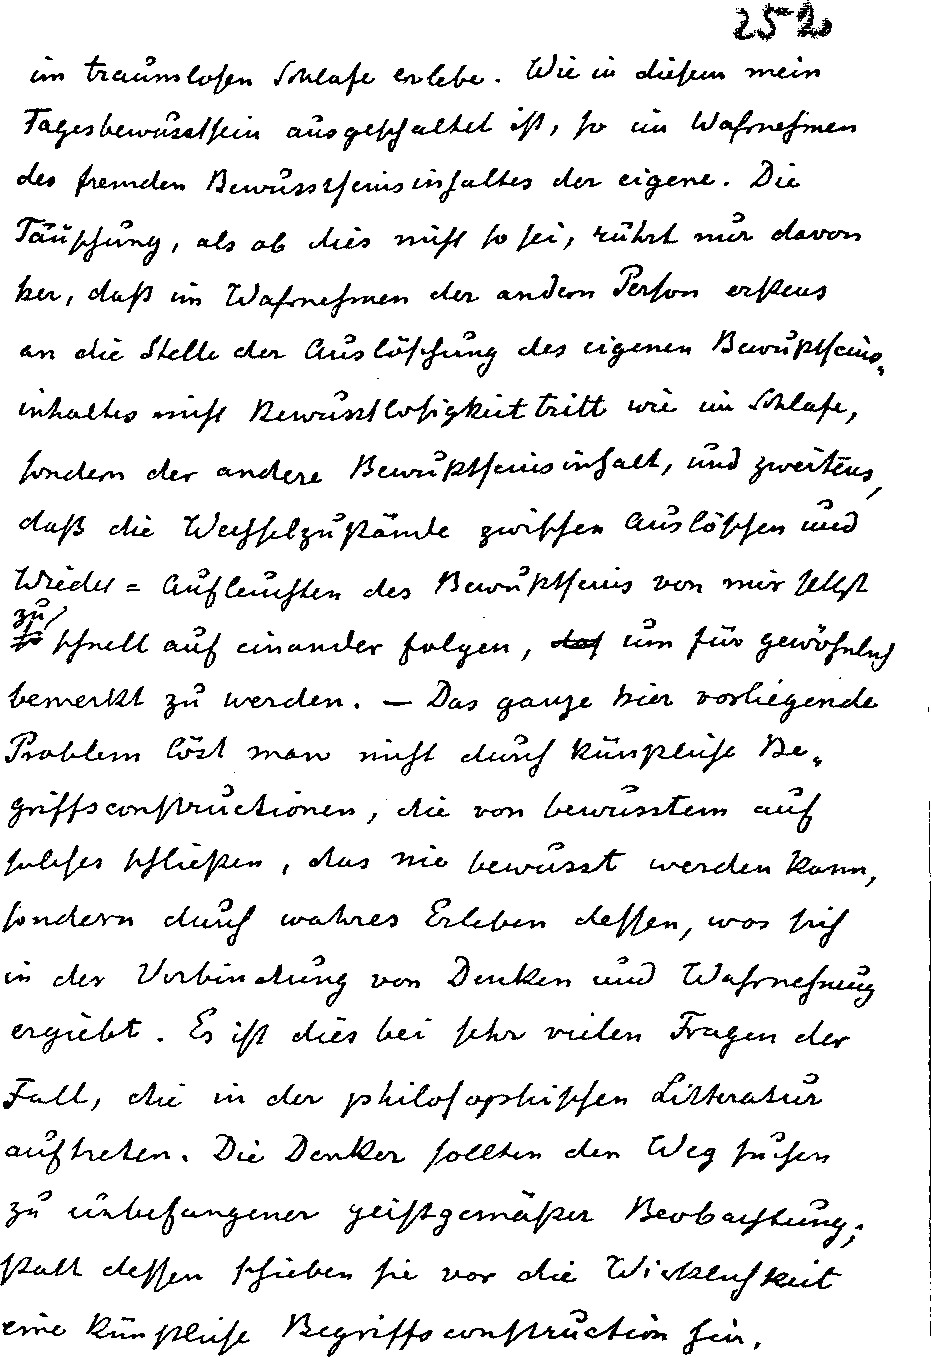 252
im traumlosen Schlafe erlebe. Wie in diesem mein
Tagesbewusstsein ausgeschaltet ist, so im Wahrnehmen
des fremden Bewusstseinsinhaltes der eigene. Die
Täuschung, als ob dies nicht so sei, rührt nur davon
her, daß im Wahrnehmen der andern Person erstens
an die Stelle der Auslöschung des eigenen Bewußtseins-
inhaltes nicht Bewusstlosigkeit tritt wie im Schlafe,
sondern der andere Bewußtseinsinhalt, und zweitens,
daß die Wechselzustände zwischen Auslöschen und
Wieder = Aufleuchten des Bewußtseins von mir selbst
zu schnell auf einander folgen, um für gewöhnlich
bemerkt zu werden. — Das ganze hier vorliegende
Problem löst man nicht durch künstliche Be-
griffsconstructionen, die von bewusstem auf
solches schließen, das nie bewusst werden kann,
sondern durch wahres Erleben dessen, was sich
in der Verbindung von Denken und Wahrnehmung
ergiebt. Es ist dies bei sehr vielen Fragen der
Fall, die in der philosophischen Litteratur
auftreten. Die Denker sollten den Weg suchen
zu unbefangener geistgemäßer Beobachtung;
statt dessen schieben sie vor die Wirklichkeit
eine künstliche Begriffsconstruction hin.